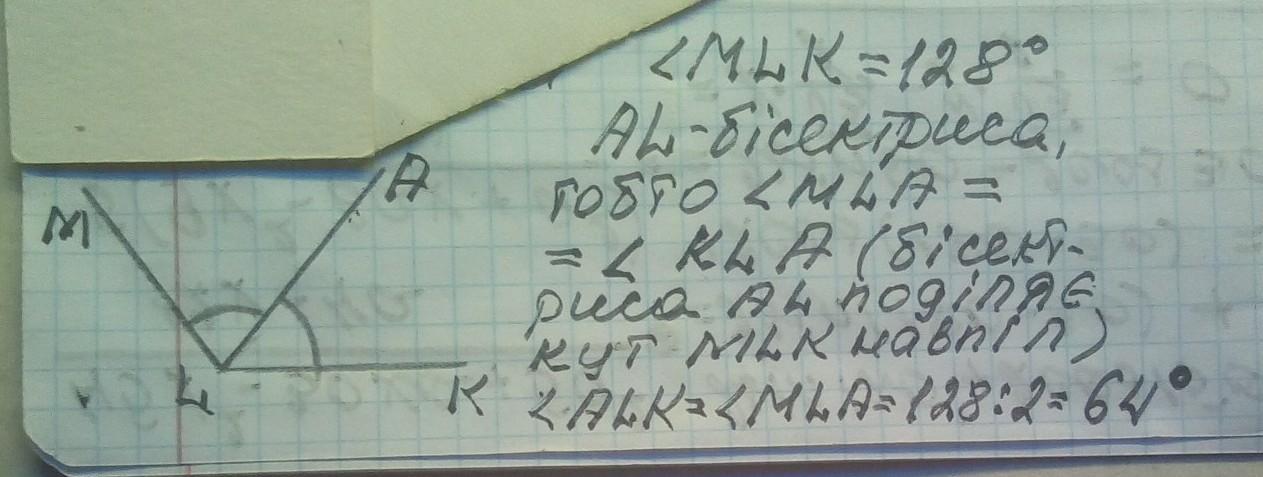 ∠MLK=128°
AL-бісектриса,
тобто ∠MLA =
= ∠ KLA (бісект-
риса AL поділяє
кут MLK навпіл)
∠ALK=∠MLA=128:2=64°
M
A
L
K